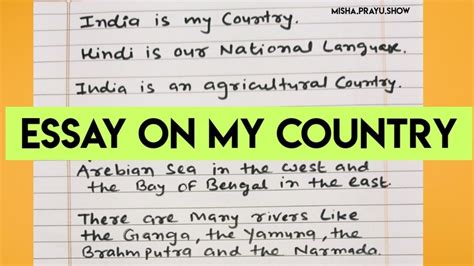 MISHA.PRAYU.SHOW
India is my Country.
Hindi is our National Language.
India is an agricultural Country.
ESSAY ON MY COUNTRY
Arebian Sea in the west and
the Bay of Bengal in the east.
There are Many rivers Like
the Ganga, the Yamuna, the
Brahmputra and the Narmada.